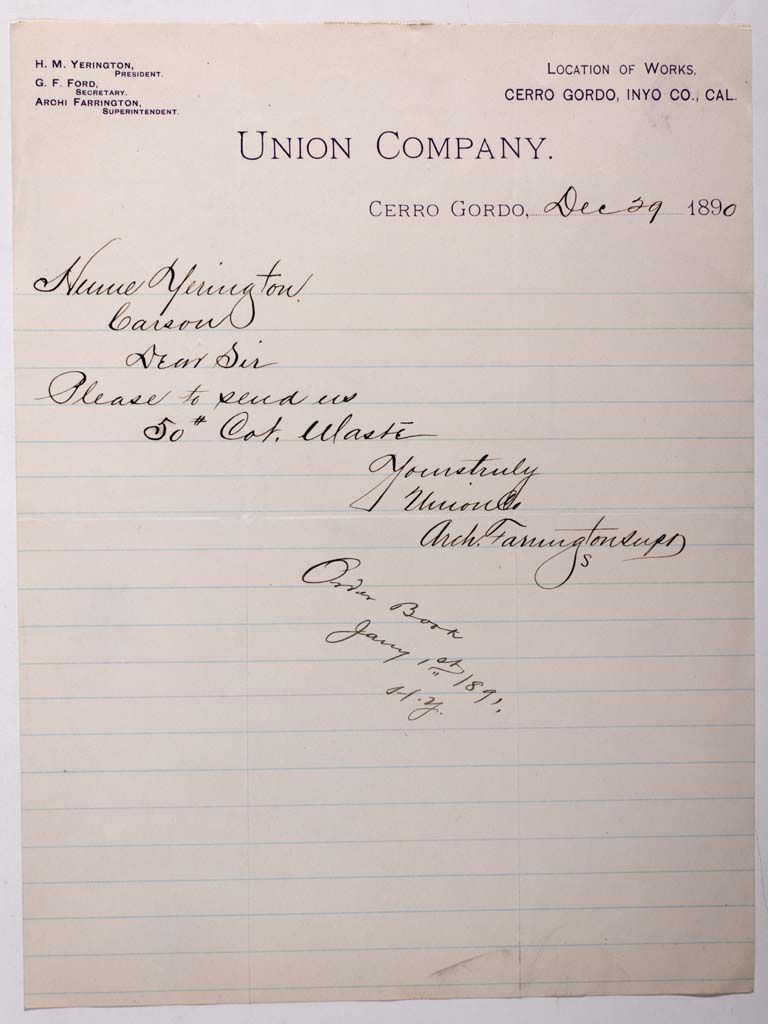 H. M. YERINGTON,
PRESIDENT.
G. F. FORD,
SECRETARY.
ARCHI FARRINGTON,
SUPERINTENDENT.
LOCATION OF WORKS,
CERRO GORDO, INYO CO., CAL.
UNION COMPANY.
CERRO GORDO, Dec 29 1890
Hume Yerington
Carson
Dear Sir
Please to send us
50# Cot. Waste
Yours truly
Union Co
Arch. Farrington Supt
S
Order Book
Jany 1st 1891.
H.Y.